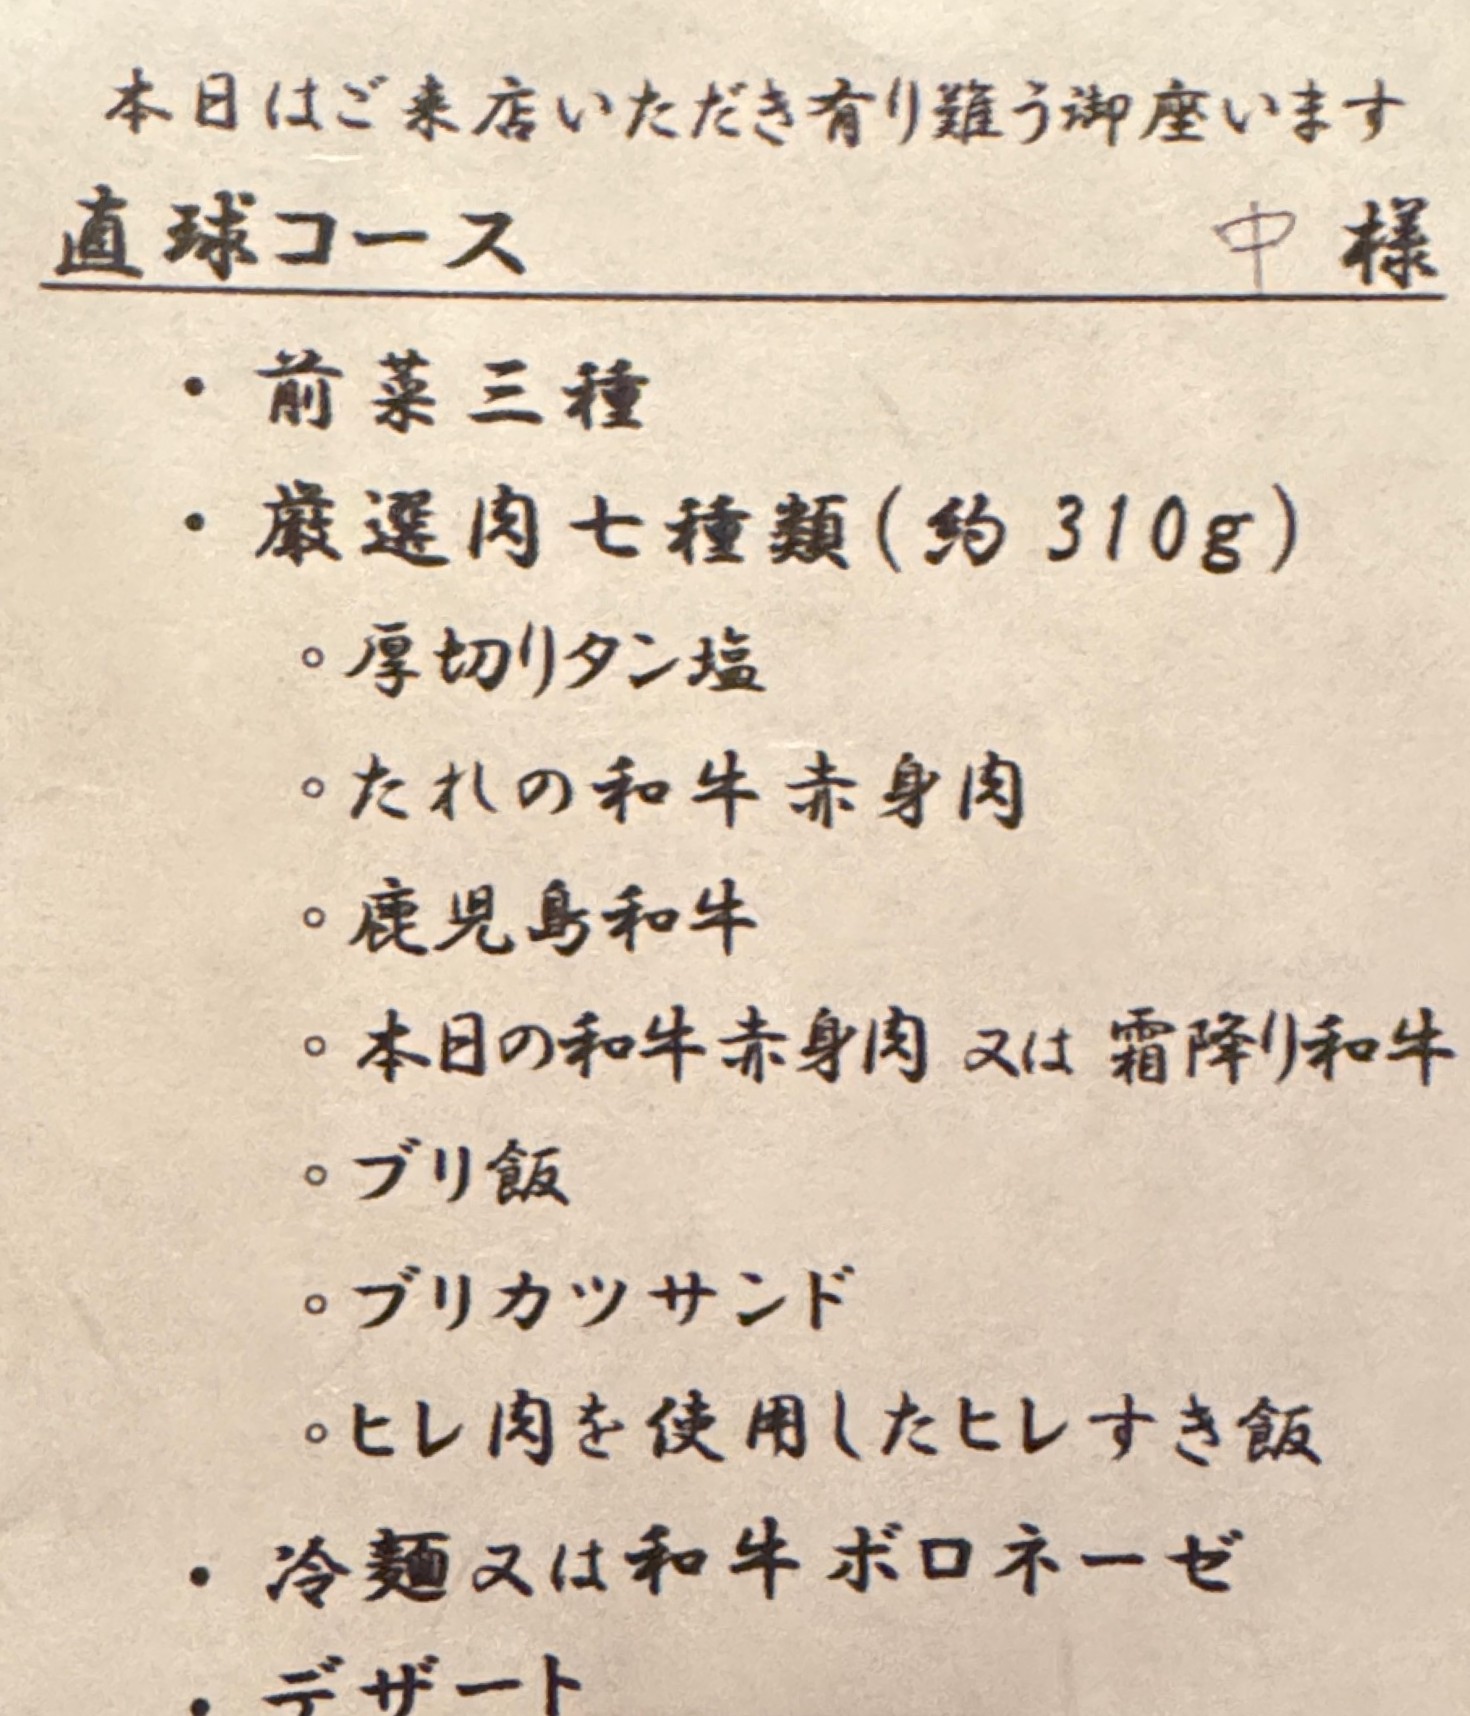 本日はご来店いただき有り難う御座います
直球コース 中 様
・前菜三種
・厳選肉七種類(約 310g)
。厚切りタン塩
。たれの和牛赤身肉
。鹿児島和牛
。本日の和牛赤身肉 又は 霜降り和牛
。ブリ飯
。ブリカツサンド
。ヒレ肉を使用したヒレすき飯
・冷麺又は和牛ボロネーゼ
・デザート